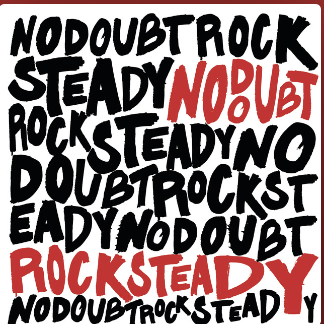 NODOUBTROCK
STEADYNODOUBT
ROCKSTEADYNO
DOUBTROCKST
EADYNODOUBT
ROCKSTEADY
NODOUBTROCKSTEADY